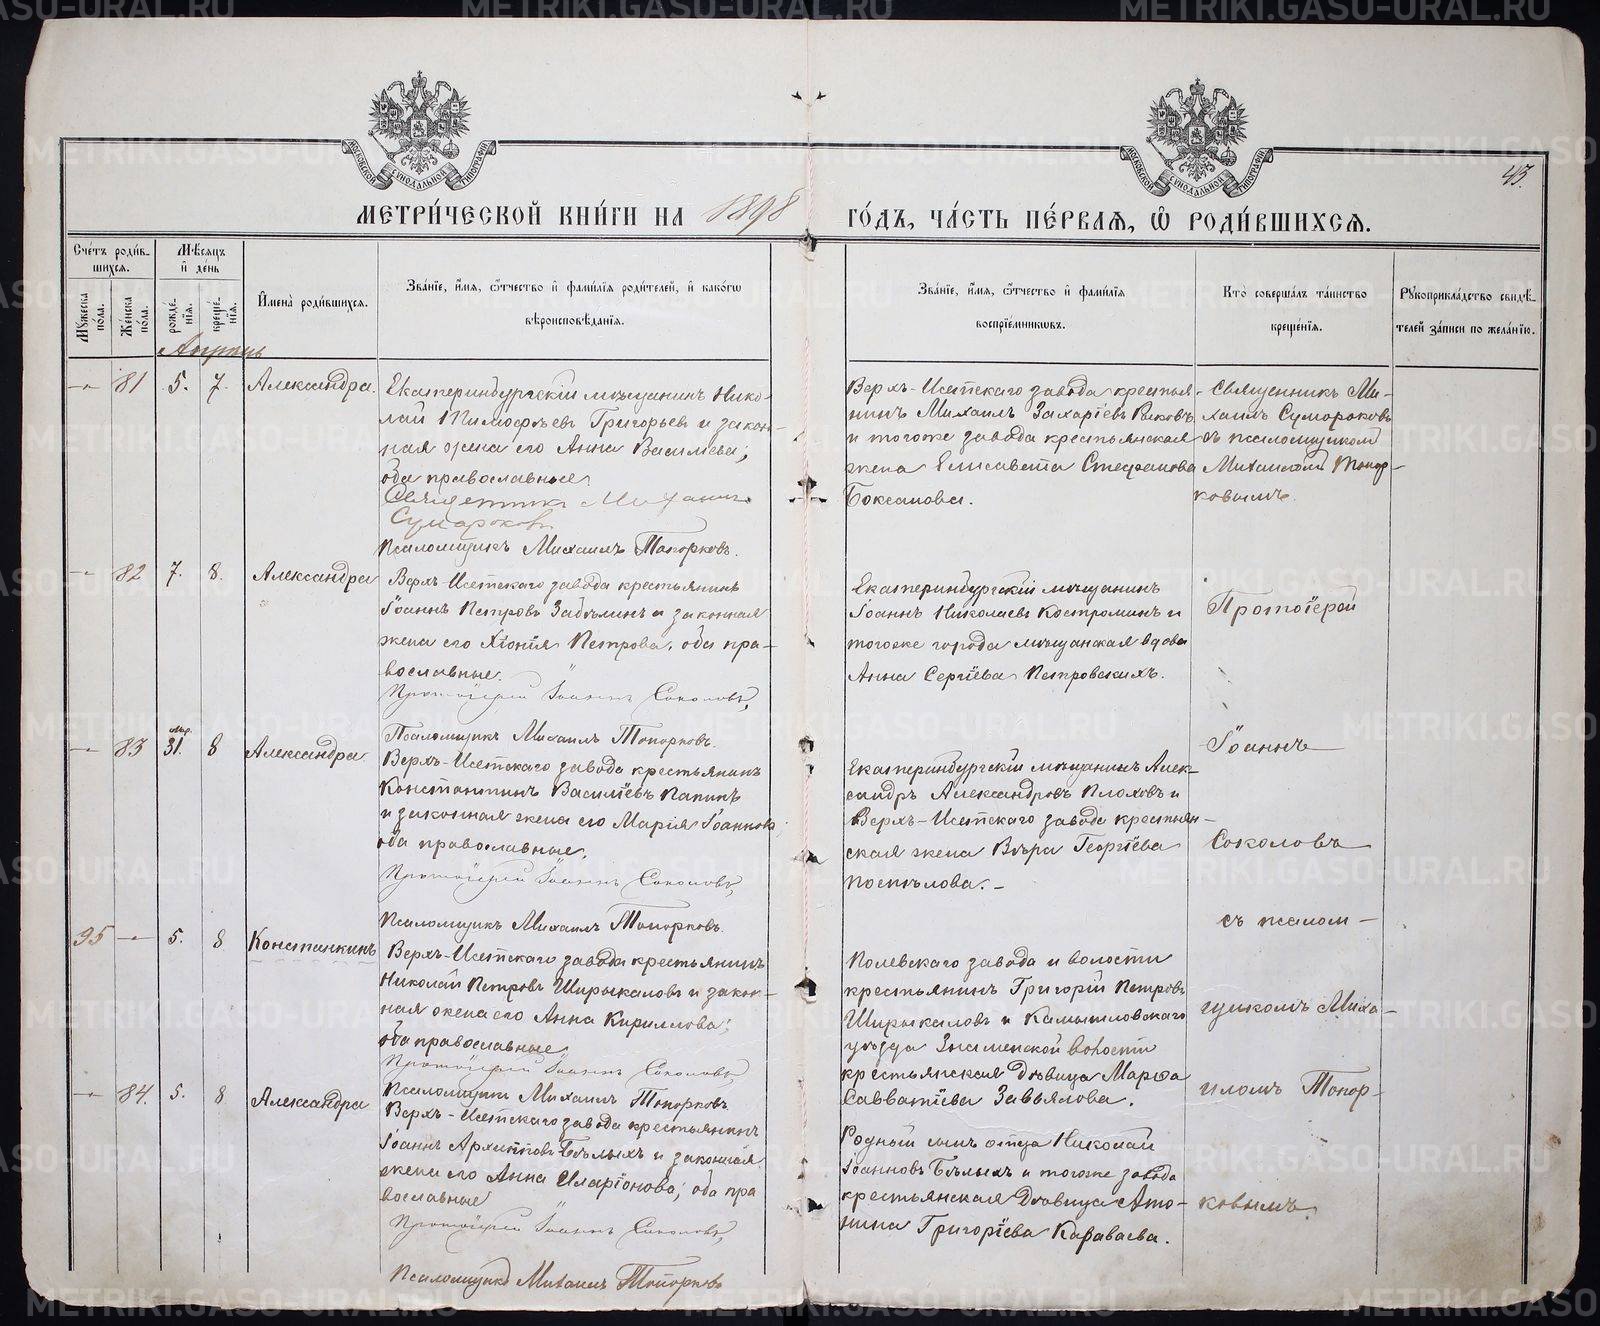 METRIKI.GASO-URAL.RU
43.
МЕТРИ́ЧЕСКОЙ КНИ́ГИ НА 1898 ГО́ДЪ, ЧА́СТЬ ПЕ́РВАѦ, Ѽ РОДИ́ВШИХСѦ.
Сче́тъ роди́в-
шихсѧ.
Мѣ́сѧцъ
и҆ де́нь
И҆мена̀ роди́вшихсѧ.
Зва́нїе, и҆́мѧ, ѻ҆́тчество и҆ фами́лїѧ роди́телей, и҆ како́гѡ
вѣроисповѣ́данїѧ.
Зва́нїе, и҆́мѧ, ѻ҆́тчество и҆ фами́лїѧ
воспрїе́мникѡвъ.
Кто̀ соверша́лъ та́инство
креще́нїѧ.
Рꙋкоприкла́дство свидѣ́-
телей за́писи по жела́нїю.
Мꙋ́жеска
по́ла.
Же́нска
по́ла.
рожде́-
нїѧ.
креще́-
нїѧ.
Апрѣль
81 5. 7. Александра.
Екатеринбургскій мѣщанинъ Нико-
лай Тимофѣевъ Григорьевъ и закон-
ная жена его Анна Васильева;
оба православные
Священникъ Михаилъ
Сумароковъ
Псаломщикъ Михаилъ Топорковъ.
Верхъ-Исетскаго завода крестья-
нинъ Михаилъ Захаріевъ Рыковъ
и тогоже завода крестьянская
жена Елисавета Стефанова
Боксанова.
Священникъ Ми-
хаилъ Сумароковъ
съ псаломщикомъ
Михаиломъ Топор-
ковымъ.
82 7. 8. Александра
Верхъ-Исетскаго завода крестьянинъ
Іоаннъ Петровъ Забѣлинъ и законная
жена его Хіонія Петрова, оба пра-
вославные.
Протоіерей Іоаннъ Соколовъ,
Псаломщикъ Михаилъ Топорковъ.
Екатеринбургскій мѣщанинъ
Іоаннъ Николаевъ Костроминъ и
тогоже города мѣщанская вдова
Анна Сергіева Петровскихъ.
Протоіерей
83 мар. 31. 8 Александра
Верхъ-Исетскаго завода крестьянинъ
Константинъ Василіевъ Папинъ
и законная жена его Марія Іоаннова
оба православные.
Протоіерей Іоаннъ Соколовъ,
Псаломщикъ Михаилъ Топорковъ.
Екатеринбургскій мѣщанинъ Алек-
сандръ Александровъ Плоховъ и
Верхъ-Исетскаго завода крестьян-
ская жена Вѣра Георгіева
Поспѣлова.
Іоаннъ
Соколовъ
съ псалом-
95 5. 8 Константинъ
Верхъ-Исетскаго завода крестьянинъ
Николай Петровъ Ширыкаловъ и закон-
ная жена его Анна Кириллова;
оба православные
Протоіерей Іоаннъ Соколовъ,
Псаломщикъ Михаилъ Топорковъ.
Полевскаго завода и волости
крестьянинъ Григорій Петровъ
Ширыкаловъ и Камышловскаго
уѣзда Знаменской волости
крестьянская дѣвица Марѳа
Савватіева Завьялова.
щикомъ Миха-
иломъ Топор-
84. 5. 8 Александра
Верхъ-Исетскаго завода крестьянинъ
Іоаннъ Архипповъ Бѣлыхъ и законная
жена его Анна Иларіонова; оба пра
вославные
Протоіерей Іоаннъ Соколовъ,
Псаломщикъ Михаилъ Топорковъ
Родный сынъ отца Николай
Іоанновъ Бѣлыхъ и тогоже завода
крестьянская дѣвица Анто-
нина Григоріева Караваева.
ковымъ.